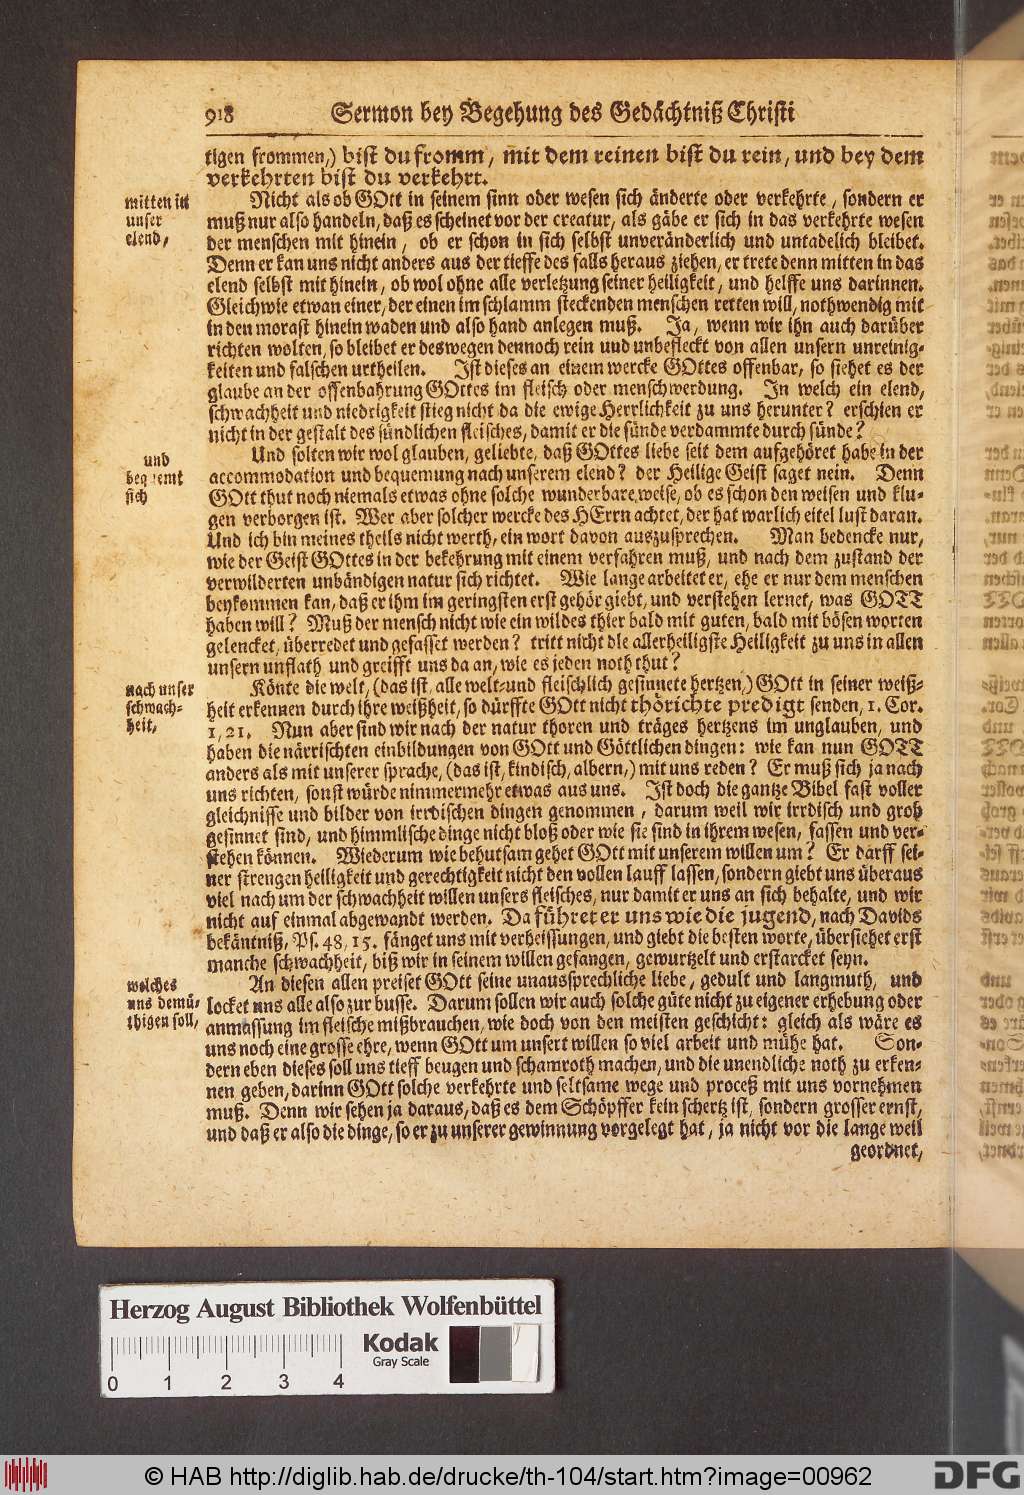 918 Sermon bey Begehung des Gedächtniß Christi
tigen frommen,) bist du fromm, mit dem reinen bist du rein, und bey dem
verkehrten bist du verkehrt.
mitten in
unser
elend,
Nicht als ob GOtt in seinem sinn oder wesen sich änderte oder verkehrte, sondern er
muß nur also handeln, daß es scheinet vor der creatur, als gäbe er sich in das verkehrte wesen
der menschen mit hinein, ob er schon in sich selbst unveränderlich und untadelich bleibet.
Denn er kan uns nicht anders aus der tieffe des falls heraus ziehen, er trete denn mitten in das
elend selbst mit hinein, ob wol ohne alle verletzung seiner heiligkeit, und helffe uns darinnen.
Gleichwie etwan einer, der einen im schlamm steckenden menschen retten will, nothwendig mit
in den morast hinein waden und also hand anlegen muß. Ja, wenn wir ihn auch darüber
richten wolten, so bleibet er deswegen dennoch rein und unbefleckt von allen unsern unreinig-
keiten und falschen urtheilen. Ist dieses an einem wercke GOttes offenbar, so siehet es der
glaube an der offenbahrung GOttes im fleisch oder menschwerdung. In welch ein elend,
schwachheit und niedrigkeit stieg nicht da die ewige Herrlichkeit zu uns herunter? erschien er
nicht in der gestalt des sündlichen fleisches, damit er die sünde verdammte durch sünde?
und
bequemt
sich
Und solten wir wol glauben, geliebte, daß GOttes liebe seit dem aufgehöret habe in der
accommodation und bequemung nach unserem elend? der Heilige Geist saget nein. Denn
GOtt thut noch niemals etwas ohne solche wunderbare weise, ob es schon den weisen und klu-
gen verborgen ist. Wer aber solcher wercke des HErrn achtet, der hat warlich eitel lust daran.
Und ich bin meines theils nicht werth, ein wort davon auszusprechen. Man bedencke nur,
wie der Geist GOttes in der bekehrung mit einem verfahren muß, und nach dem zustand der
verwilderten unbändigen natur sich richtet. Wie lange arbeitet er, ehe er nur dem menschen
beykommen kan, daß er ihm im geringsten erst gehör giebt, und verstehen lernet, was GOTT
haben will? Muß der mensch nicht wie ein wildes thier bald mit guten, bald mit bösen worten
gelencket, überredet und gefasset werden? tritt nicht die allerheiligste Heiligkeit zu uns in allen
unsern unflath und greifft uns da an, wie es jeden noth thut?
nach unser
schwach-
heit,
Könte die welt, (das ist, alle welt-und fleischlich gesinnete hertzen,) GOtt in seiner weiß-
heit erkennen durch ihre weißheit, so dürffte GOtt nicht thörichte predigt senden, 1. Cor.
1, 21. Nun aber sind wir nach der natur thoren und träges hertzens im unglauben, und
haben die närrischten einbildungen von GOtt und Göttlichen dingen: wie kan nun GOTT
anders als mit unserer sprache, (das ist, kindisch, albern,) mit uns reden? Er muß sich ja nach
uns richten, sonst würde nimmermehr etwas aus uns. Ist doch die gantze Bibel fast voller
gleichnisse und bilder von irrdischen dingen genommen, darum weil wir irrdisch und grob
gesinnet sind, und himmlische dinge nicht bloß oder wie sie sind in ihrem wesen, fassen und ver-
stehen können. Wiederum wie behutsam gehet GOtt mit unserem willen um? Er darff sei-
ner strengen heiligkeit und gerechtigkeit nicht den vollen lauff lassen, sondern giebt uns überaus
viel nach um der schwachheit willen unsers fleisches, nur damit er uns an sich behalte, und wir
nicht auf einmal abgewandt werden. Da führet er uns wie die jugend, nach Davids
bekäntniß, Ps. 48, 15. fänget uns mit verheissungen, und giebt die besten worte, übersiehet erst
manche schwachheit, biß wir in seinem willen gefangen, gewurtzelt und erstarcket seyn.
welches
uns demü-
thigen soll,
An diesen allen preiset GOtt seine unaussprechliche liebe, gedult und langmuth, und
locket uns alle also zur busse. Darum sollen wir auch solche güte nicht zu eigener erhebung oder
anmassung im fleische mißbrauchen, wie doch von den meisten geschicht: gleich als wäre es
uns noch eine grosse ehre, wenn GOtt um unsert willen so viel arbeit und mühe hat. Son-
dern eben dieses soll uns tieff beugen und schamroth machen, und die unendliche noth zu erken-
nen geben, darinn GOtt solche verkehrte und seltsame wege und proceß mit uns vornehmen
muß. Denn wir sehen ja daraus, daß es dem Schöpffer kein schertz ist, sondern grosser ernst,
und daß er also die dinge, so er zu unserer gewinnung vorgelegt hat, ja nicht vor die lange weil
geordnet,
Herzog August Bibliothek Wolfenbüttel
Kodak
Gray Scale
0 1 2 3 4
© HAB http://diglib.hab.de/drucke/th-104/start.htm?image=00962
DFG